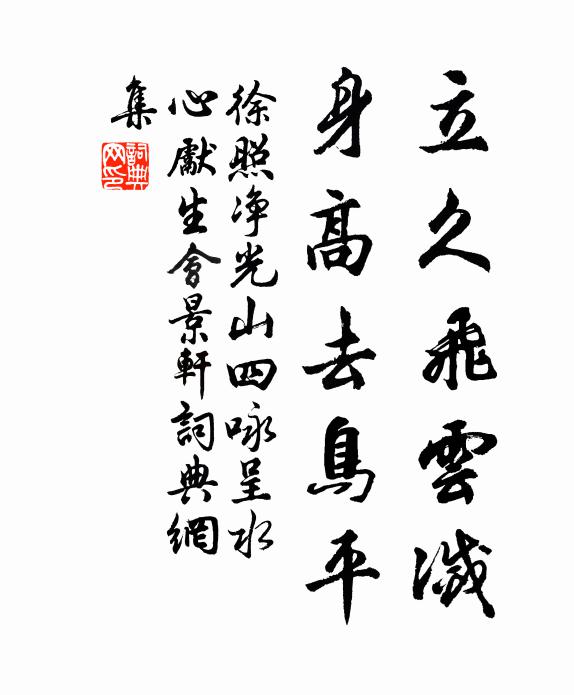 立久飛雲滅
身高去鳥平
徐照净光山四咏呈水
心獻生會景軒詞典網
集
詞典网印